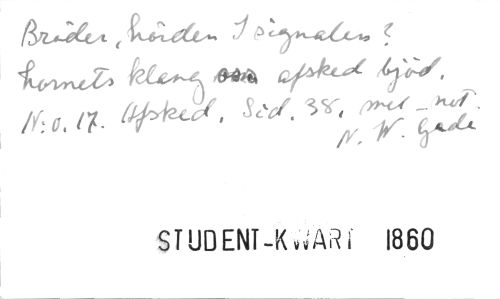 Bröder, hörden I signalen?
hornets klang oss afsked bjöd.
N:o. 17. Afsked. Sid. 38. mel_not.
N. W. Gade
STUDENT-KWART 1860